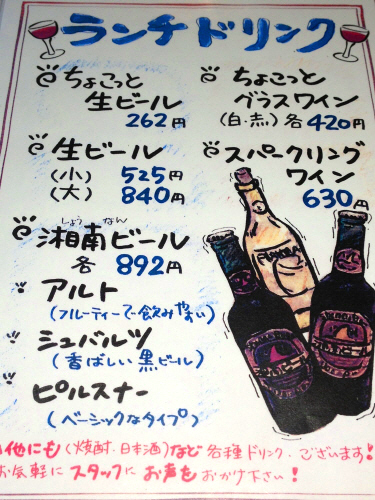 ランチドリンク
ちょこっと
生ビール
262円
生ビール
(小) 525円
(大) 840円
しょう なん
湘南ビール
各 892円
アルト
(フルーティーで飲みやすい)
シュバルツ
(香ばしい黒ビール)
ピルスナー
(ベーシックなタイプ)
ちょこっと
グラスワイン
(白・赤) 各420円
スパークリング
ワイン
630円
他にも(焼酎・日本酒)など各種ドリンクございます!
お気軽にスタッフにお声をおかけ下さい!